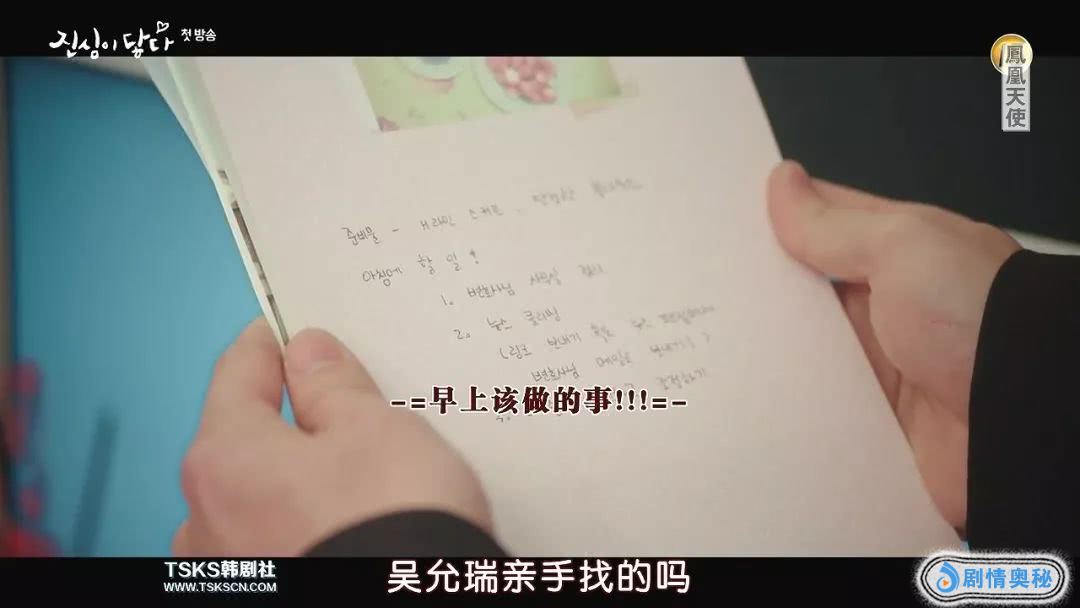 진심이 닿다 첫 방송
鳳凰天使
준비물 - H라인 스커트,
아침에 할 일!
1. 변호사님 사무실 정리
2. 뉴스 클리핑
(링크 보내기
변호사님 메일로 보내기!)
-=早上该做的事!!!=-
吴允瑞亲手找的吗
TSKS韩剧社
WWW.TSKSCN.COM
剧情奥秘